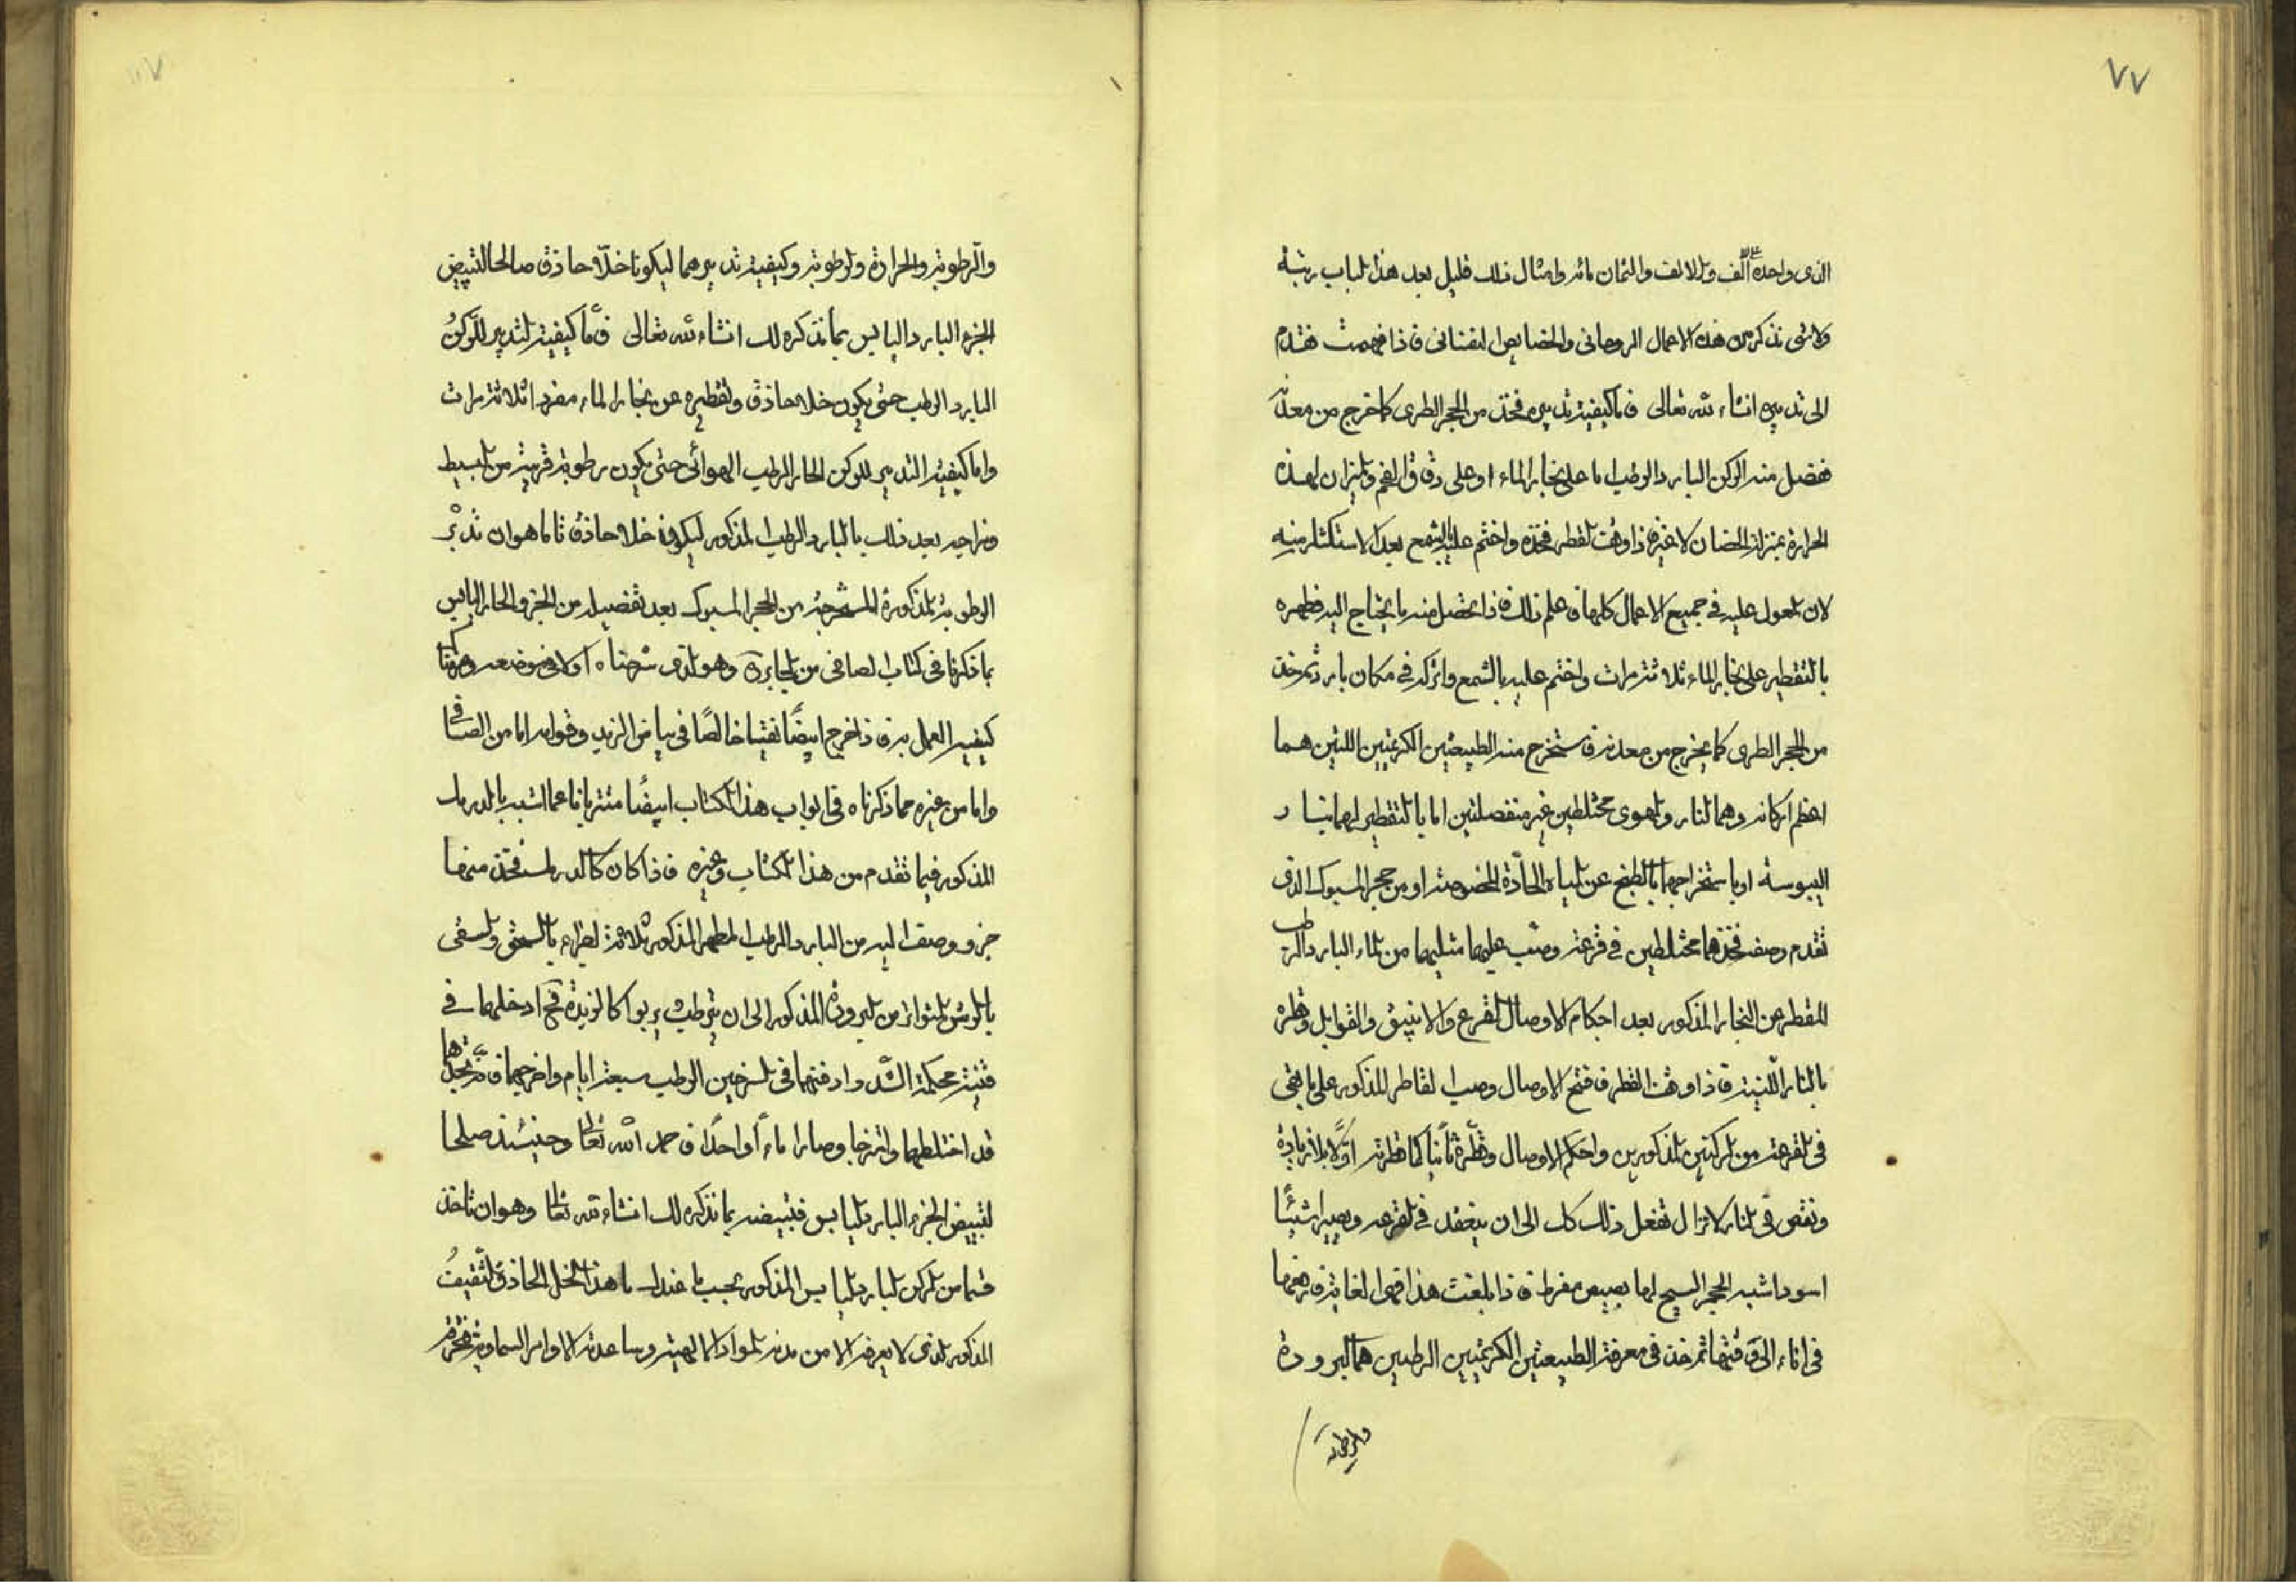 ٧٧
الذى واحده الف والالف والثمان مائه وامثال ذلك قليل بعد هذا الباب رتبة
ولاشى نذكر من هذه الاعمال الروحانى والخصايص فاذا فهمت فتقدم
الى تدبيره انشاء الله تعالى فاما كيفية تدبيره فخذ من الحجر الطرى كما خرج من معدنه
ففصل منه الركن البارد الرطب اما على بخار الماء او على دقاق الفحم والميزان لهذه
الحرارة بمنزلة الحضان لا غيره فاذا وقف القطر فخذه واختم عليه بالشمع بعد الاستكثار منه
لان المعول عليه فى جميع الاعمال كلها فاعلم ذلك فاذا تحصل منه ما يحتاج اليه فطهره
بالتقطير على بخار الماء ثلاثة مرات واختم عليه بالشمع واتركه فى مكان بارد ثم خذ
من الحجر الطرى كما يخرج من معدنه فاستخرج منه الطبيعتين الكريمتين اللتين هما
اعظم اركانه وهما النار والهوى مختلطين غير منفصلتين اما بالتقطير لهما بنار
اليبوسة او باستخراجهما بالطبخ عن المياه الحادة المخصوصة او من حجر المسبوك الذى
تقدم وصفه فخذهما مختلطين فى قرعة وصب عليهما مثليهما من الماء البارد الرطب
المقطر عن البخار المذكور بعد احكام الاوصال القرع والانبيق والقوابل وقطره
بالنار اللينة فاذا وقف القطر فافتح الاوصال وصب القاطر المذكور على ما بقى
فى القرعة من الركنين المذكورين واحكم الاوصال وقطره ثانيا كما قطرته اولا بلا زيادة
ونقص فى النار لا تزال تفعل ذلك كل الى ان ينعقد فى القرعه ويصيرا شيئا
اسودا شبه الحجر السبج لهما بصيص مفرط فاذا بلغت هذا فهو الغاية فارفعهما
فى اناء الى وقتهما ثم خذ فى معرفة الطبيعتين الكريمتين الرطبين هما البرودة
والرطوبة
والرطوبة والحرارة والرطوبة وكيفية تدبيرهما ليكونا خلا حاذق صالحا لتبييض
الجزء البارد اليابس بما نذكره لك انشاء الله تعالى فاما كيفية التدبير للركن
البارد الرطب حتى يكون خلا حاذق وتقطيره عن بخار الماء مفردا ثلاثة مرات
واما كيفية التدبير للركن الحار الرطب الهوائى حتى يكون رطوبة قريبة من البسيط
ومزاجه بعد ذلك بالبارد الرطب المذكور ليكون خلا حاذق تاما هو ان تدبر
الرطوبة المذكورة المستخرجة من الحجر المسبوك بعد تفصيله من الجزء الحار اليابس
بما ذكرنا فى كتاب الصافى من الجابرة وهو الذى شرحناه اولا فى موضعه
كيفية العمل به فاذا خرج ابيضا نقيا خالصا فى بياض الزبد وقوامه اما من الصافى
واما من غيره مما ذكرناه فى ابواب هذا الكتاب ايضا
المذكور فيما تقدم من هذا الكتاب وغيره فاذا كان كالدرمك فخذ منهما
جزو وصف اليه من البارد الرطب المطهر المذكور ثلاثة اجزاء بالسحق والسقى
بالرش المتواتر من البرودة المذكور الى ان يترطب ويربوا كالزبدة فح ادخلهما فى
قنينة محكمة الشد وادفنهما فى السرجين الرطب سبعة ايام واخرجهما فتجدهما
قد اختلطهما وامتزجا وصارا ماءا واحدا فاحمد الله تعالى وحينئذ صلحا
لتبييض الجزء البارد اليابس فتبيضه بما نذكره لك انشاء الله تعالى وهو ان تاخذ
قسما من الركن البارد اليابس المذكور بحسب ما عندك من هذا الخل الحاذق الثقيف
المذكور الذى لا يعرفه الا من المواد الالهية وساعدته الاوامر السماوية